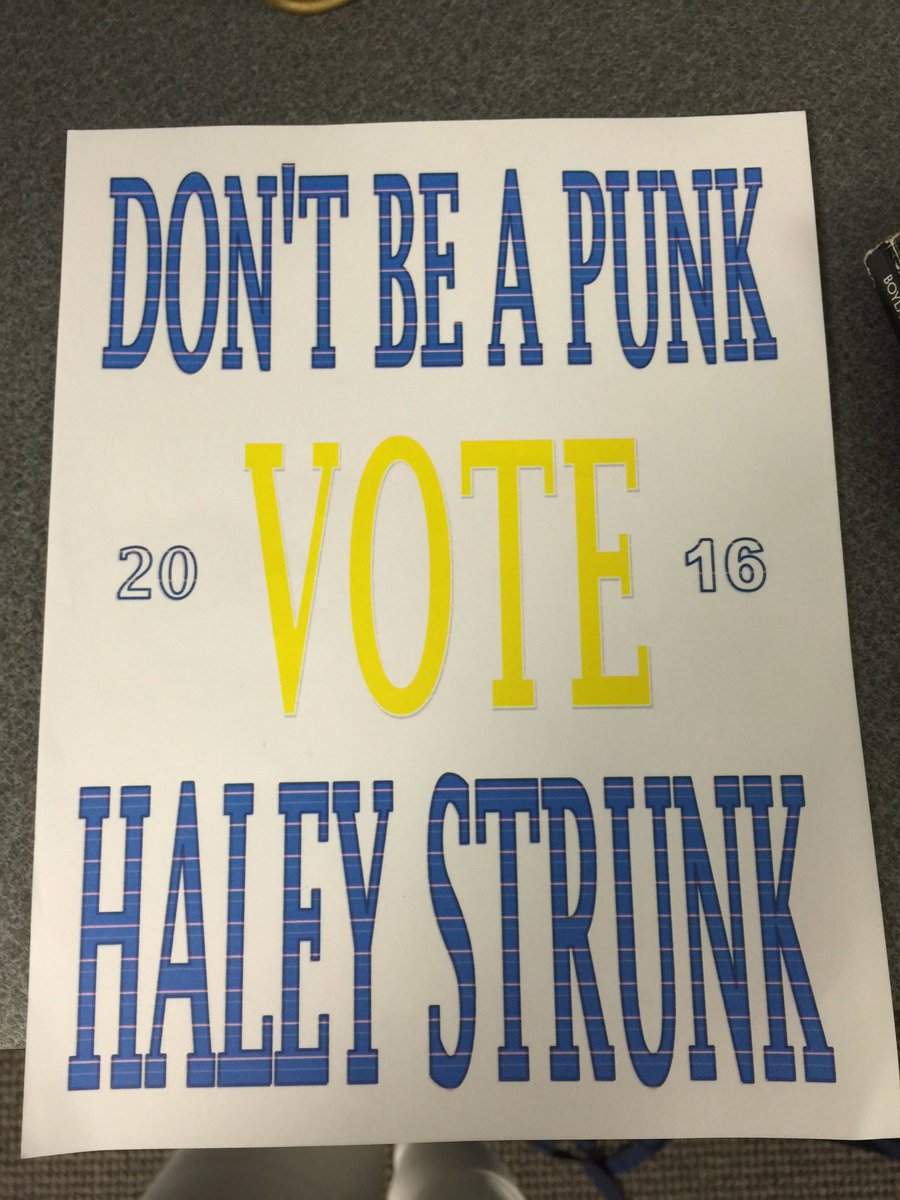 DON'T BE A PUNK
20 VOTE 16
HALEY STRUNK